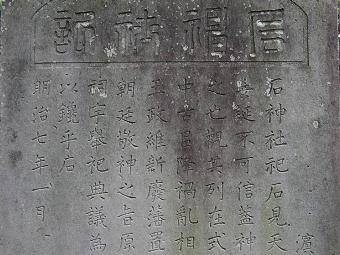 石神社記
石神社祀石見天
誕不可信蓋神
之亡觀其列在式
中古昌降禍亂相
王政維新廢藩置
朝廷敬神之旨原
祠宇舉祀典議為
以鑱乎石
明治七年一月